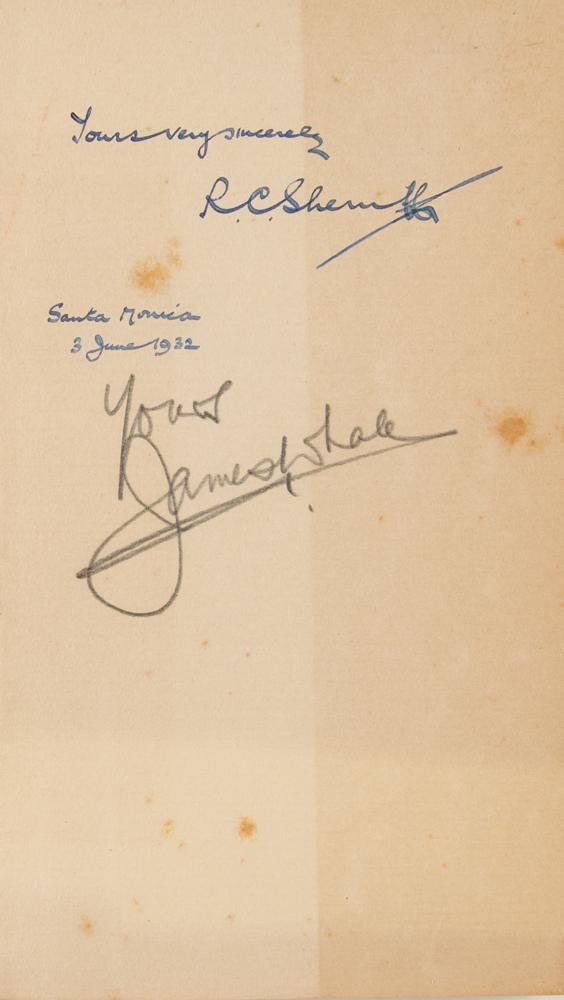 Yours very sincerely
R.C. Sherriff
Santa Monica
3 June 1932
Yours
James Whale